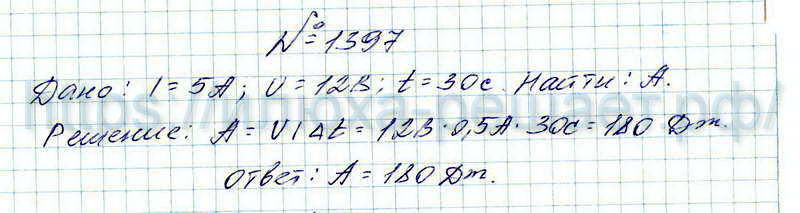 № 1397
Дано: I = 5А; U = 12В; t = 30с. Найти: А.
Решение: А = UIΔt = 12В·0,5А·30с = 180 Дж.
Ответ: А = 180 Дж.